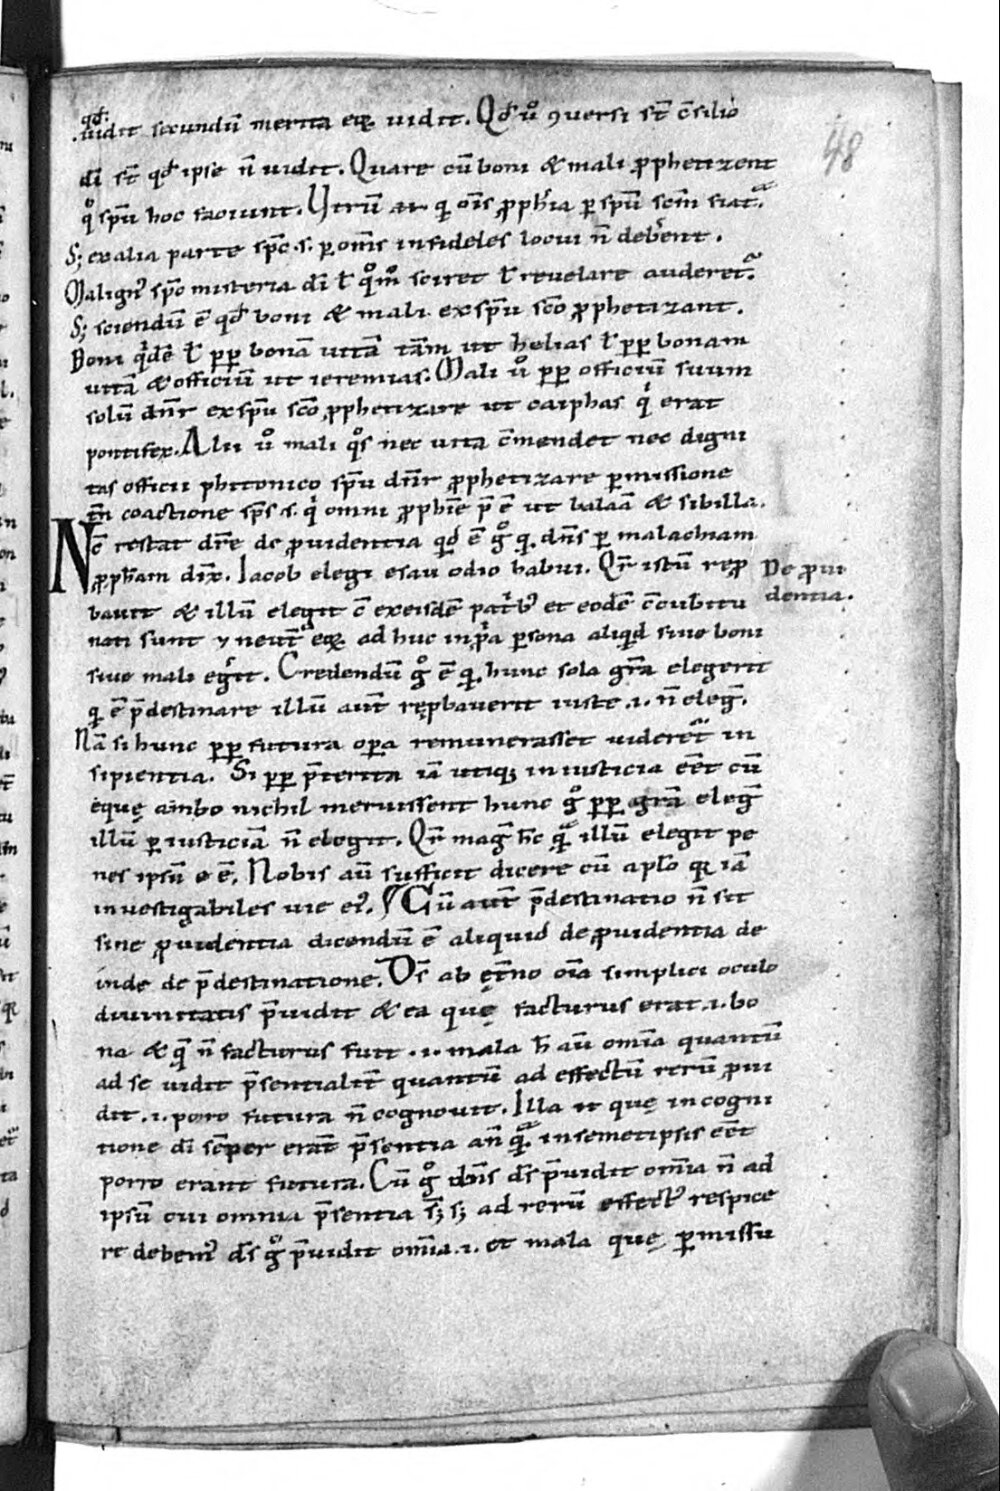 qđ
uidit secundū merita eoꝝ uidit. Qđ ů ꝯuersi st̄ c̄silio
dī st̄ qđ ipse n̄ uidit. Quare cū boni & mali ꝓphetizent
q̊ spū hoc faciunt. Utrū aꝉ qͥ oīs ꝓph̄ia ꝑ spū scm̄ fiat.
S; ex alia parte spc̄ .s. ꝑ om̄s infideles locui n̄ deb̄ent.
Malign᷒ spc̄ misteria dī ꝉ q̊m̊ sciret ꝉ reuelare auderet.
S; sciendū ē qđ boni & mali ex spū sc̄o ꝓphetizant.
Boni qͥdē ꝉ ꝓꝑ bonā uitā tām ut helias ꝉ ꝓꝑ bonam
uitā & officiū ut ieremias. Mali ů ꝓꝑ officiū suum
solū dn̄r ex spū sc̄o ꝓphetizare ut caiphas qͥ erat
pontifex. Alii ů mali q̊s nec uita c̄mendet nec digni
tas officii phitonico spū dn̄r ꝓphetizare ꝑmissione
tn̄ coactione sp̄s .s. qͥ omni ꝓph̄ie p̄ ē ut balaā & sibilla.
Nc̄ restat dr̄e de ꝓuidentia qđ ē g̊ ꝙ dn̄s ꝑ malachiam
ꝓph̄am dix̄. Iacob elegi esau odio habui. Qr̄ istū reꝓ
De ꝓui
dentia.
bauit & illū elegit c̄ ex eisdē patͥb᷒ et eodē c̄cubitu
nati sunt ⁊ neut̄ eoꝝ adhuc in ꝓp̄a ꝑsona aliqͥd siue boni
siue mali eḡit. Credendū g̊ ē ꝙ hunc sola gr̄a elegerit
qͥ ē p̄destinare illū aut̄ reꝓbauerit iuste .i. n̄ eleḡ.
Nā si hunc ꝓꝑ futura oꝑa remunerasset uideret᷑ in
sipientia. Si ꝓꝑ p̄terita iā utiqꝫ iniusticia eēt cū
eque ambo nichil meruissent hunc g̊ ꝓꝑ grā eleḡ
illū ꝑ iusticiā n̄ elegit. Qr̄ maḡ h̄c qͣ illū elegit pe
nes ipsū ē. Nobis aū sufficit dicere cū aplo qͥ iā
inuestigabiles uie ei᷒. Cū aut̄ p̄destinatio n̄ sit
sine ꝓuidentia dicendū ē aliquid de ꝓuidentia de
inde de p̄destinatione. Ds̄ ab et̄no oīa simplici oculo
diuinitatis p̄uidit & ea que facturus erat .i. bo
na & q̄ n̄ facturus fuit .i. mala h̄ aū omīa quantū
ad se uidit p̄sentialit̄ quantū ad effectū rerū ꝓui
dit .i. porro futura n̄ cognouit. Illa et que in cogni
tione dī sēper erāt p̄sentia an̄ qͣ in semetipsis eēt
porro erant futura. Cū g̊ dn̄s ds̄ p̄uidit omīa n̄ ad
ipsū cui omnia p̄sentia s̄; s; ad rerū effect᷒ respice
re debem᷒ ds̄ g̊ p̄uidit omīa .i. et mala que ꝑmissu
48